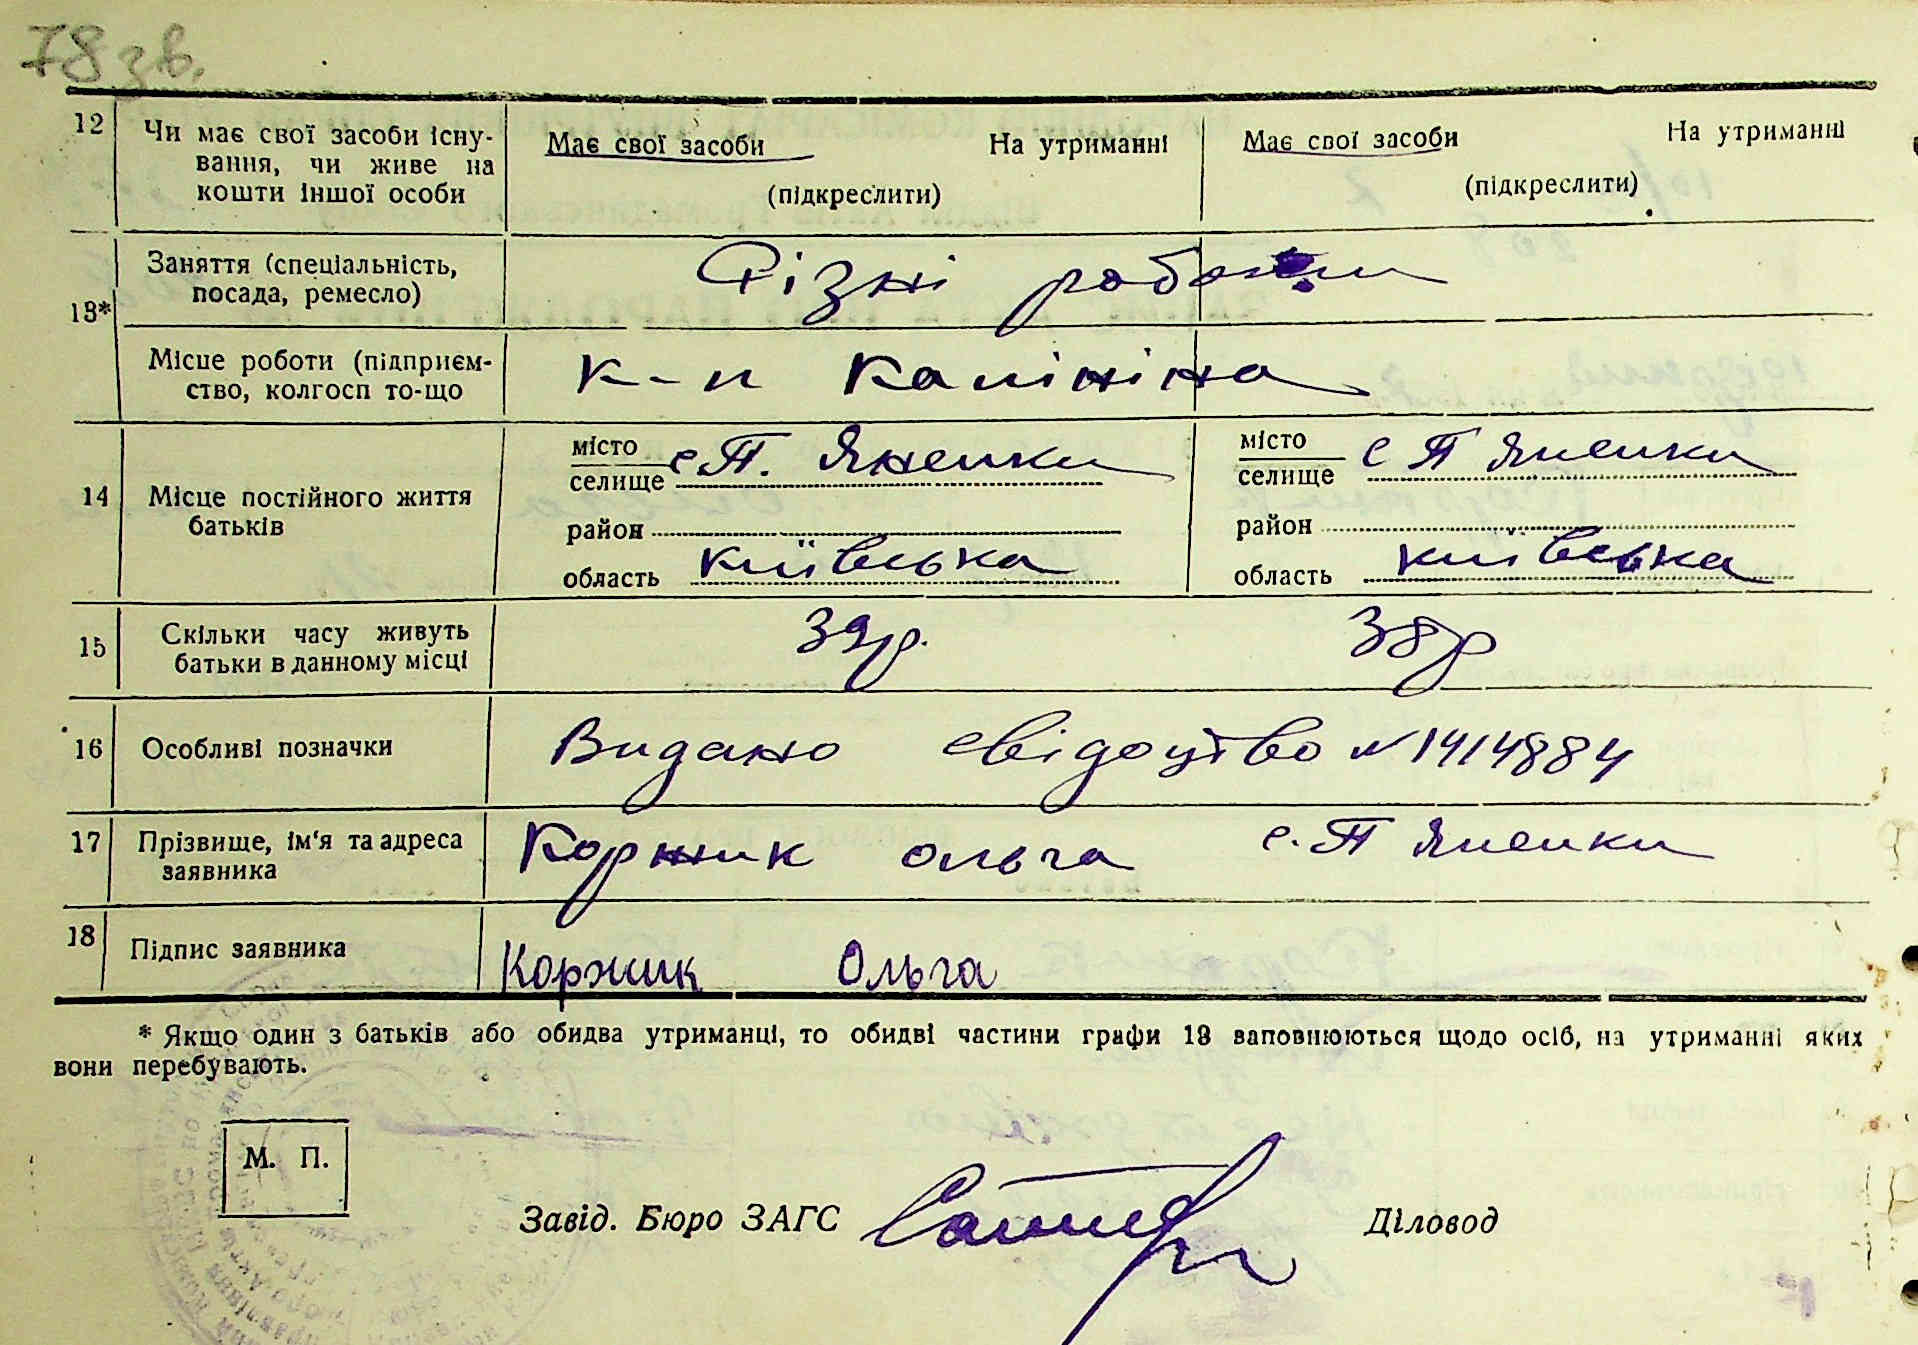 78 зв.
12 Чи має свої засоби існу-
вання, чи живе на
кошти іншої особи
Має свої засоби На утриманні
(підкреслити)
Має свої засоби На утриманні
(підкреслити)
13*
Заняття (спеціальність,
посада, ремесло)
Різні роботи
Місце роботи (підприєм-
ство, колгосп то-що
к-п Калініна
14 Місце постійного життя
батьків
місто
селище с П. Яненки
район
область київська
місто
селище с П Яненки
район
область київська
15 Скільки часу живуть
батьки в данному місці
39р. 38р
16 Особливі позначки
Видано свідоцтво N 1414884
17 Прізвище, ім'я та адреса
заявника
Коржик Ольга с. П Яненки
18 Підпис заявника
Коржик Ольга
* Якщо один з батьків або обидва утриманці, то обидві частини графи 13 заповнюються щодо осіб, на утриманні яких
вони перебувають.
М. П.
Завід. Бюро ЗАГС
Діловод